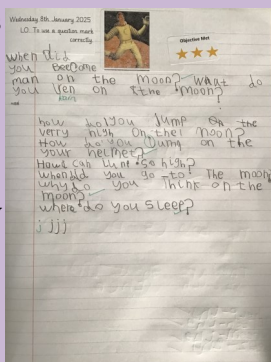 Wednesday 8th January 2025
L.O. To use a question mark correctly.
Objective Met
when did
you become
man on the moon? What do
you len on the moon?
how do you Jump on the
verry high on the moon?
How do you on the
your helmet?
How can so high?
when did you go to the moon
why do you think on the
moon?
where do you sleep?
j jjj